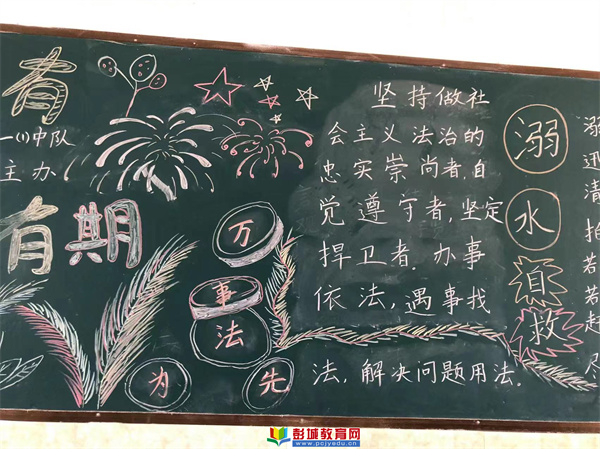 有
一(1)中队
主办
有期
万
事
法
为
先
坚持做社
会主义法治的
忠实崇尚者,自
觉遵守者,坚定
捍卫者.办事
依法,遇事找
法,解决问题用法.
溺
水
自
救
溺
迅
清
若
若
赶
尽
彭城教育网
www.pcjyedu.cn